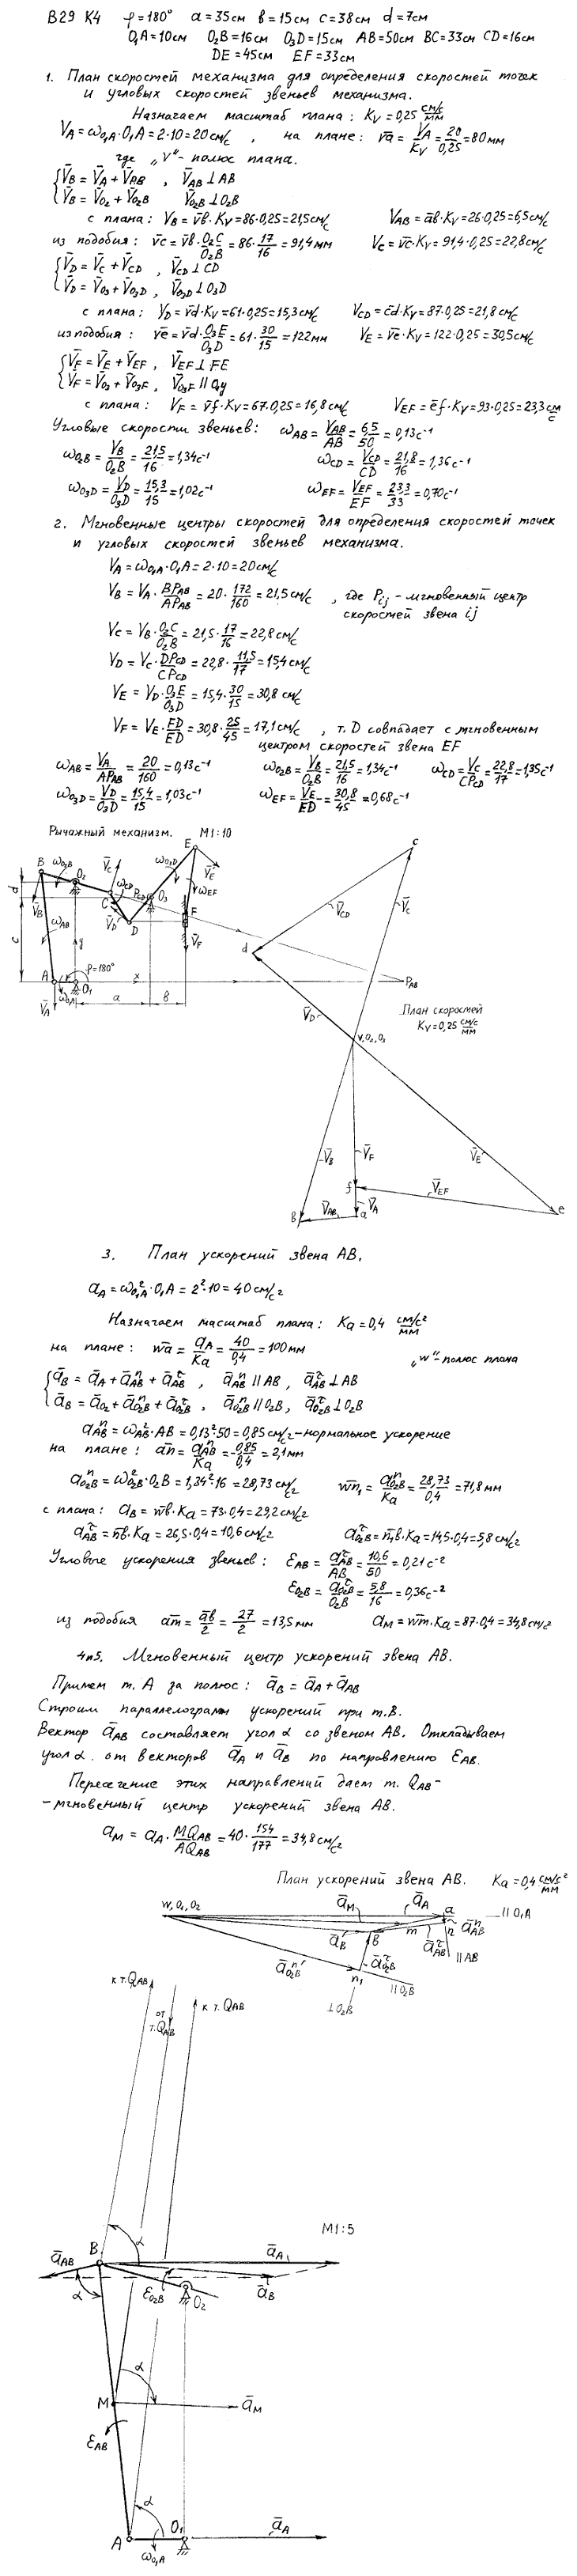 В29 К4 φ=180° a=35см в=15см c=38см d=7см
O₁A=10см O₂B=16см O₃D=15см AB=50см BC=33см CD=16см
DE=45см EF=33см
1. План скоростей механизма для определения скоростей точек
и угловых скоростей звеньев механизма.
Назначаем масштаб плана: Kv=0,25 см/с/мм
V_A=ω_O₁A·O₁A=2·10=20см/с, на плане: v̄a=V_A/Kv=20/0,25=80мм
где „V"- полюс плана.
V̄_B=V̄_A+V̄_AB, V̄_AB⊥AB
V̄_B=V̄_O₂+V̄_O₂B V̄_O₂B⊥O₂B
с плана: V_B=v̄в·Kv=86·0,25=21,5см/с V_AB=āв·Kv=26·0,25=6,5см/с
из подобия: v̄c=v̄в·O₂C/O₂B=86·17/16=91,4мм V_C=v̄c·Kv=91,4·0,25=22,8см/с
V̄_D=V̄_C+V̄_CD, V̄_CD⊥CD
V̄_D=V̄_O₃+V̄_O₃D, V̄_O₃D⊥O₃D
с плана: V_D=v̄d·Kv=61·0,25=15,3см/с V_CD=c̄d·Kv=87·0,25=21,8см/с
из подобия: v̄e=v̄d·O₃E/O₃D=61·30/15=122мм V_E=v̄e·Kv=122·0,25=30,5см/с
V̄_F=V̄_E+V̄_EF, V̄_EF⊥FE
V̄_F=V̄_O₃+V̄_O₃F, V̄_O₃F∥O₁y
с плана: V_F=v̄f·Kv=67·0,25=16,8см/с V_EF=ēf·Kv=93·0,25=23,3см/с
Угловые скорости звеньев: ω_AB=V_AB/AB=6,5/50=0,13с⁻¹
ω_O₂B=V_B/O₂B=21,5/16=1,34с⁻¹ ω_CD=V_CD/CD=21,8/16=1,36с⁻¹
ω_O₃D=V_D/O₃D=15,3/15=1,02с⁻¹ ω_EF=V_EF/EF=23,3/33=0,70с⁻¹
2. Мгновенные центры скоростей для определения скоростей точек
и угловых скоростей звеньев механизма.
V_A=ω_O₁A·O₁A=2·10=20см/с
V_B=V_A·BP_AB/AP_AB=20·172/160=21,5см/с, где P_ij - мгновенный центр
скоростей звена ij
V_C=V_B·O₂C/O₂B=21,5·17/16=22,8см/с
V_D=V_C·DP_CD/CP_CD=22,8·11,5/17=15,4см/с
V_E=V_D·O₃E/O₃D=15,4·30/15=30,8см/с
V_F=V_E·FD/ED=30,8·25/45=17,1см/с, т.D совпадает с мгновенным
центром скоростей звена EF
ω_AB=V_A/AP_AB=20/160=0,13с⁻¹ ω_O₂B=V_B/O₂B=21,5/16=1,34с⁻¹ ω_CD=V_C/CP_CD=22,8/17=1,35с⁻¹
ω_O₃D=V_D/O₃D=15,4/15=1,03с⁻¹ ω_EF=V_E/ED=30,8/45=0,68с⁻¹
Рычажный механизм. М1:10
B ω_O₂B O₂ V̄_C ω_CD P_CD O₃ ω_O₃D E V̄_E ω_EF
d V̄_B C V̄_D D F V̄_F
c ω_AB y
A φ=180° x O₁ ω_O₁A V̄_A
a в
P_AB
План скоростей
Kv=0,25 см/с/мм
c V̄_CD V̄_C
d V̄_D
v,o₂,o₃
V̄_B V̄_F V̄_E
f V̄_EF
в V̄_AB a V̄_A e
3. План ускорений звена АВ.
a_A=ω²_O₁A·O₁A=2²·10=40см/с²
Назначаем масштаб плана: Ka=0,4 см/с²/мм
на плане: w̄a=a_A/Ka=40/0,4=100мм „w"-полюс плана
ā_B=ā_A+āⁿ_AB+ā^τ_AB, āⁿ_AB∥AB, ā^τ_AB⊥AB
ā_B=ā_O₂+āⁿ_O₂B+ā^τ_O₂B, āⁿ_O₂B∥O₂B, ā^τ_O₂B⊥O₂B
aⁿ_AB=ω²_AB·AB=0,13²·50=0,85см/с²-нормальное ускорение
на плане: ān=aⁿ_AB/Ka=0,85/0,4=2,1мм
aⁿ_O₂B=ω²_O₂B·O₂B=1,34²·16=28,73см/с² w̄n₁=aⁿ_O₂B/Ka=28,73/0,4=71,8мм
с плана: a_B=w̄в·Ka=73·0,4=29,2см/с²
a^τ_AB=n̄в·Ka=26,5·0,4=10,6см/с² a^τ_O₂B=n̄₁в·Ka=14,5·0,4=5,8см/с²
Угловые ускорения звеньев: ε_AB=a^τ_AB/AB=10,6/50=0,21с⁻²
ε_O₂B=a^τ_O₂B/O₂B=5,8/16=0,36с⁻²
из подобия ām=āв/2=27/2=13,5мм a_M=w̄m·Ka=87·0,4=34,8см/с²
4и5. Мгновенный центр ускорений звена АВ.
Примем т. А за полюс: ā_B=ā_A+ā_AB
Строим параллелограмм ускорений при т.В.
Вектор ā_AB составляет угол α со звеном АВ. Откладываем
угол α от векторов ā_A и ā_B по направлению ε_AB.
Пересечение этих направлений дает т. Q_AB-
-мгновенный центр ускорений звена АВ.
a_M=a_A·MQ_AB/AQ_AB=40·154/177=34,8см/с²
План ускорений звена АВ. Ka=0,4 см/с²/мм
w,o₁,o₂ ā_M ā_A a ∥O₁A
ā_B в m n āⁿ_AB
ā^τ_AB ∥AB
āⁿ_O₂B n₁ ā^τ_O₂B ∥O₂B
⊥O₂B
к т.Q_AB от т.Q_AB к т. Q_AB
М1:5
B α ā_A
ā_AB ā_B
α ε_O₂B O₂
M α ā_M
ε_AB
α
A O₁ ā_A
ω_O₁A